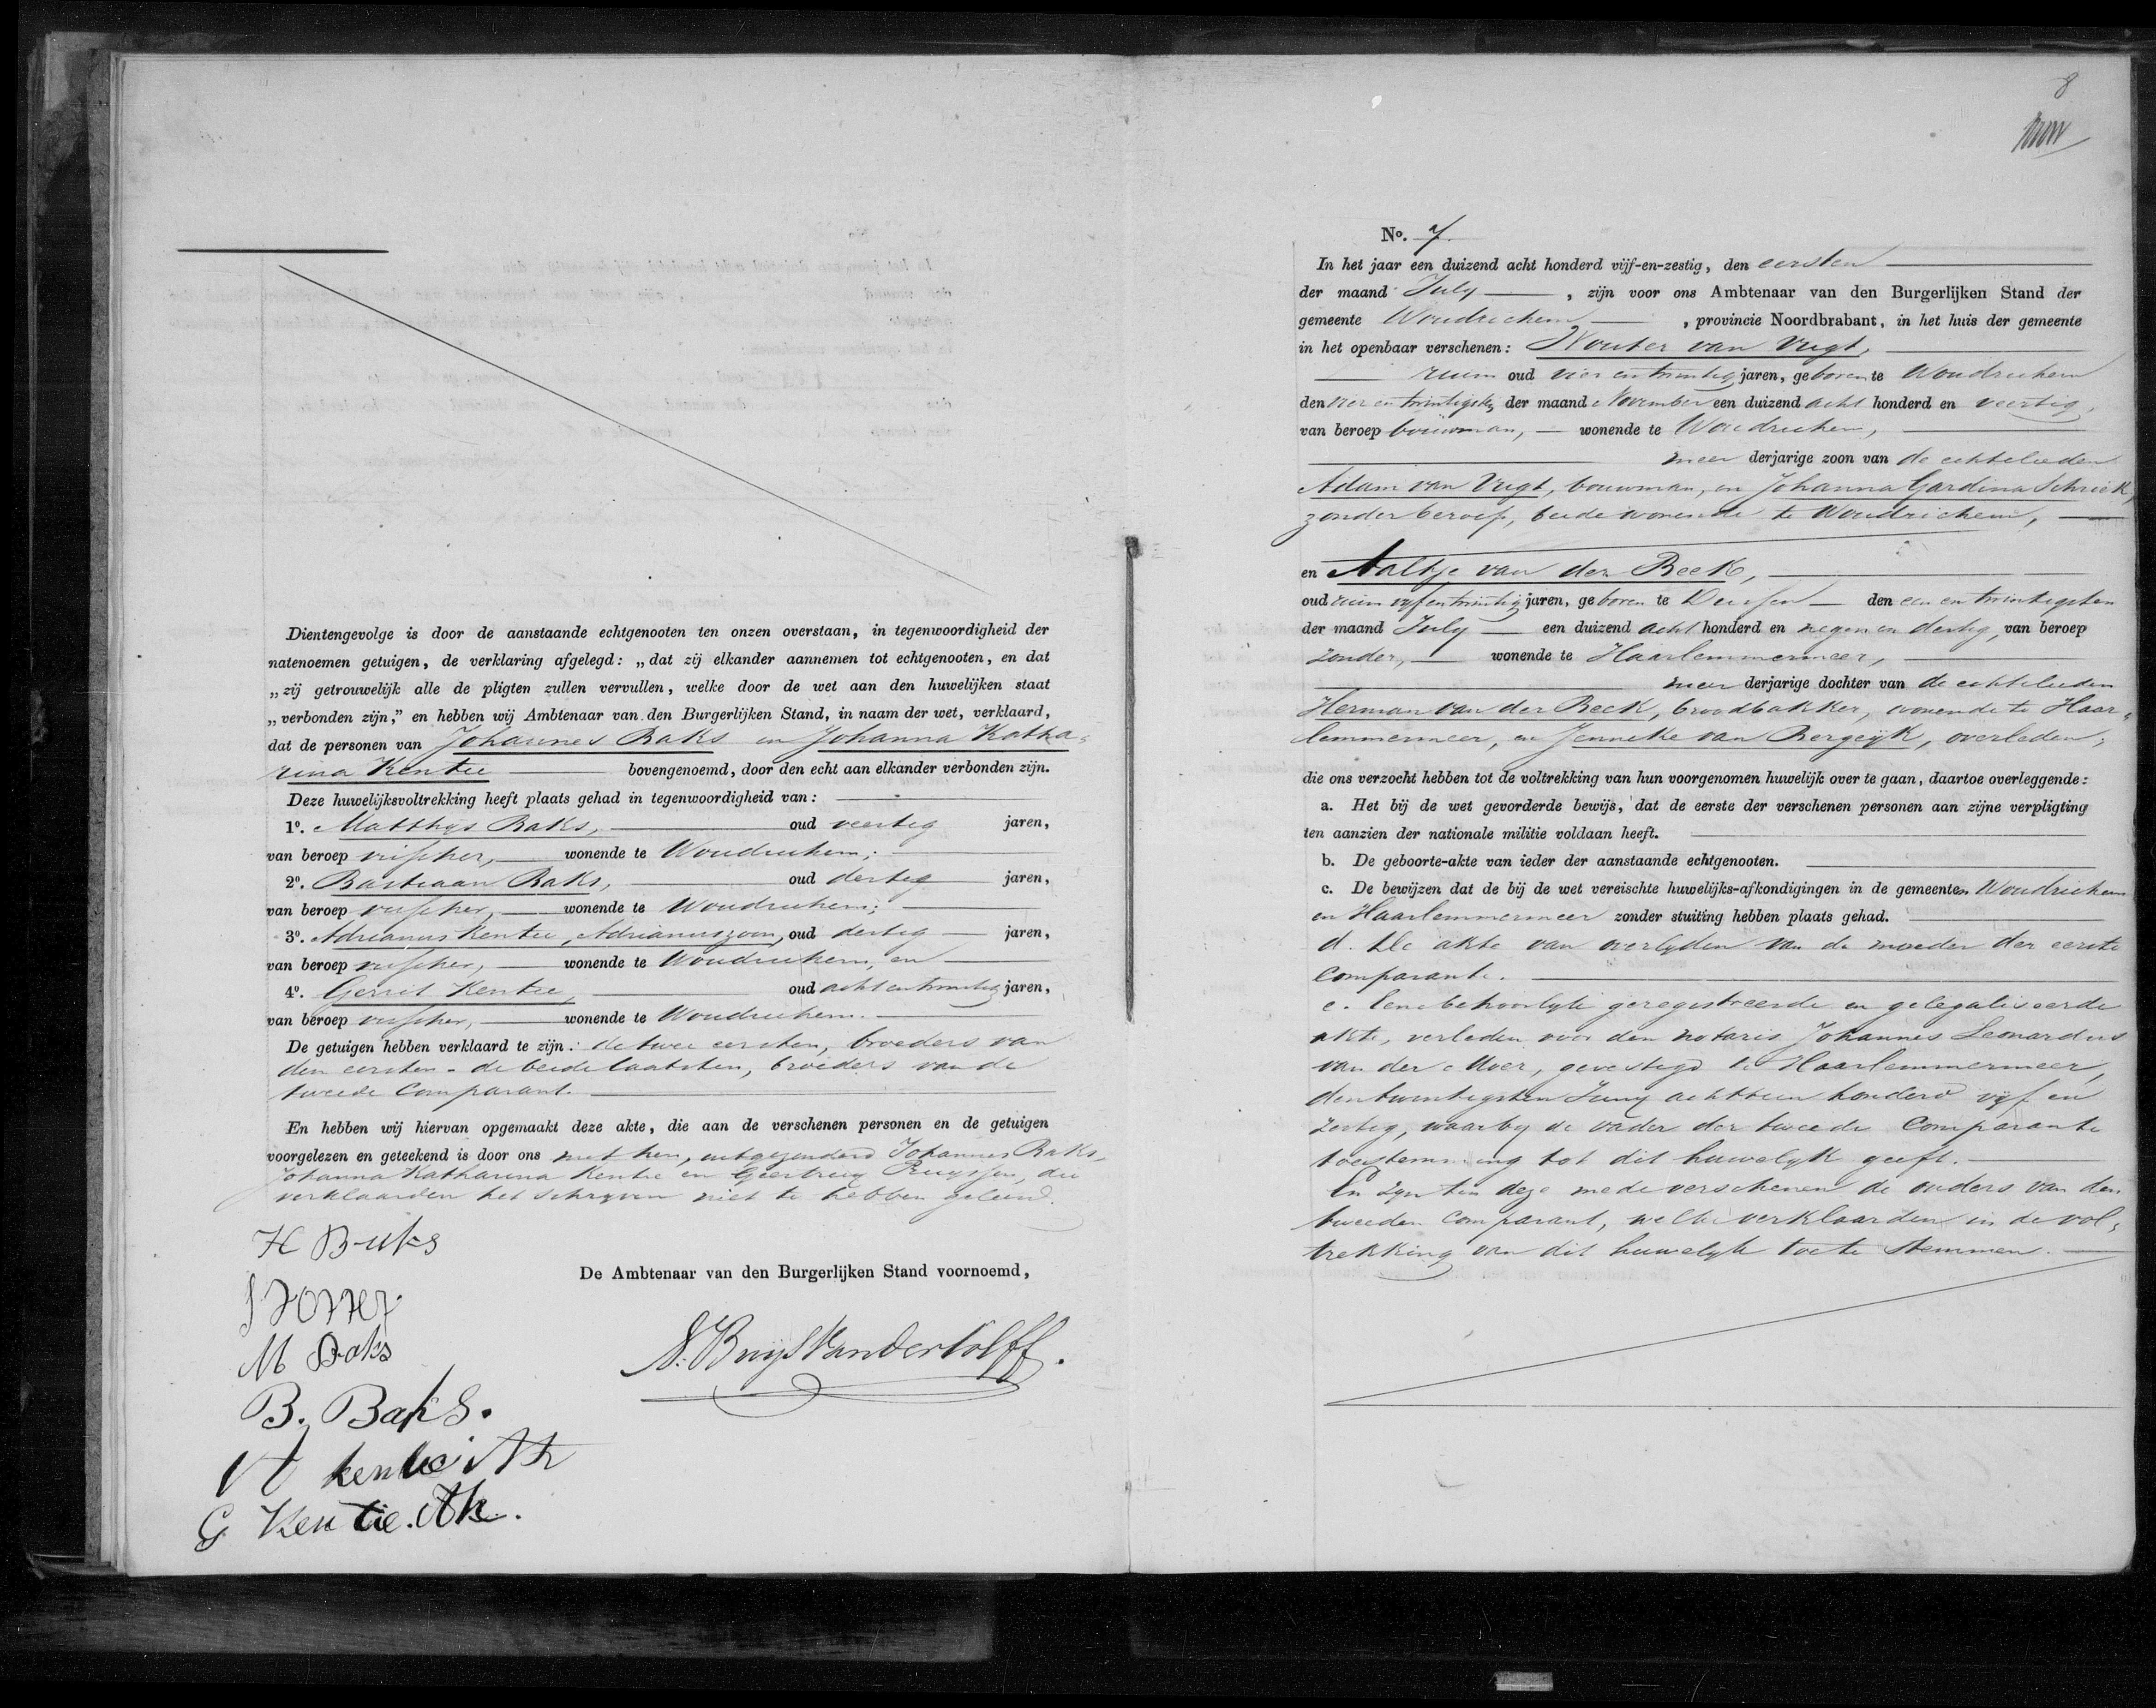 Dientengevolge is door de aanstaande echtgenooten ten onzen overstaan, in tegenwoordigheid der
natenoemen getuigen, de verklaring afgelegd: „dat zij elkander aannemen tot echtgenooten, en dat
„zij getrouwelijk alle de pligten zullen vervullen, welke door de wet aan den huwelijken staat
„verbonden zijn,” en hebben wij Ambtenaar van den Burgerlijken Stand, in naam der wet, verklaard,
dat de personen van Johannes Baks en Johanna Katha-
rina Kentie bovengenoemd, door den echt aan elkander verbonden zijn.
Deze huwelijksvoltrekking heeft plaats gehad in tegenwoordigheid van:
1º. Matthijs Baks, oud veertig jaren,
van beroep visscher, wonende te Woudrichem;
2º. Bastiaan Baks, oud dertig jaren,
van beroep visscher, wonende te Woudrichem;
3º. Adrianus Kentie, Adrianuszoon, oud dertig jaren,
van beroep visscher, wonende te Woudrichem, en
4º. Gerrit Kentie, oud acht en twintig jaren,
van beroep visscher, wonende te Woudrichem.
De getuigen hebben verklaard te zijn: de twee eersten, broeders van
den eersten - de beide laatsten, broeders van de
tweede Comparant.
En hebben wij hiervan opgemaakt deze akte, die aan de verschenen personen en de getuigen
voorgelezen en geteekend is door ons met hen, uitgezonderd Johannes Baks,
Johanna Katharina Kentie en Geertruy Pruyssen, die
verklaarden het schryven niet te hebben geleerd.
H Baks
M Baks
B. Baks.
A kentie Az
G Kentie. Az.
De Ambtenaar van den Burgerlijken Stand voornoemd,
8
No. 7.
In het jaar een duizend acht honderd vijf-en-zestig, den eersten
der maand July, zijn voor ons Ambtenaar van den Burgerlijken Stand der
gemeente Woudrichem, provincie Noordbrabant, in het huis der gemeente
in het openbaar verschenen: Wouter van Vugt,
ruim oud vier en twintig jaren, geboren te Woudrichem
den vier en twintigsten der maand November een duizend acht honderd en veertig,
van beroep bouwman, wonende te Woudrichem,
meer derjarige zoon van de echtelieden
Adam van Vugt, bouwman, en Johanna Gardina Schriek,
zonder beroep, beide wonende te Woudrichem,
en Aaltje van der Beek,
oud ruim vyf en twintig jaren, geboren te Dussen den een en twintigsten
der maand July een duizend acht honderd en negen en dertig, van beroep
zonder, wonende te Haarlemmermeer,
meer derjarige dochter van de echtelieden
Herman van der Beek, broodbakker, wonende te Haar-
lemmermeer, en Jenneke van Bergeyk, overleden,
die ons verzocht hebben tot de voltrekking van hun voorgenomen huwelijk over te gaan, daartoe overleggende:
a. Het bij de wet gevorderde bewijs, dat de eerste der verschenen personen aan zijne verpligting
ten aanzien der nationale militie voldaan heeft.
b. De geboorte-akte van ieder der aanstaande echtgenooten.
c. De bewijzen dat de bij de wet vereischte huwelijks-afkondigingen in de gemeenten Woudrichem
en Haarlemmermeer zonder stuiting hebben plaats gehad.
d. De akte van overlyden van de moeder der eerste
comparante.
e. Eene behoorlyk geregistreerde en gelegaliseerde
akte, verleden voor den notaris Johannes Leonardus
van der Moer, gevestigd te Haarlemmermeer,
den twintigsten Juny achttien honderd vyf en
zestig, waarby de vader der tweede Comparante
toestemming tot dit huwelyk geeft.
En zyn ten deze mede verschenen de ouders van den
tweeden comparant, welke verklaarden in de vol-
trekking van dit huwelyk toe te stemmen.